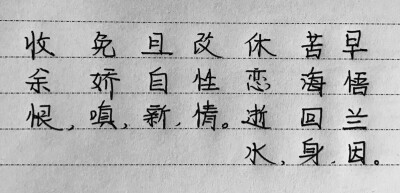 收余恨,
免娇嗔,
且自新,
改性情。
休恋逝水,
苦海回身,
早悟兰因。